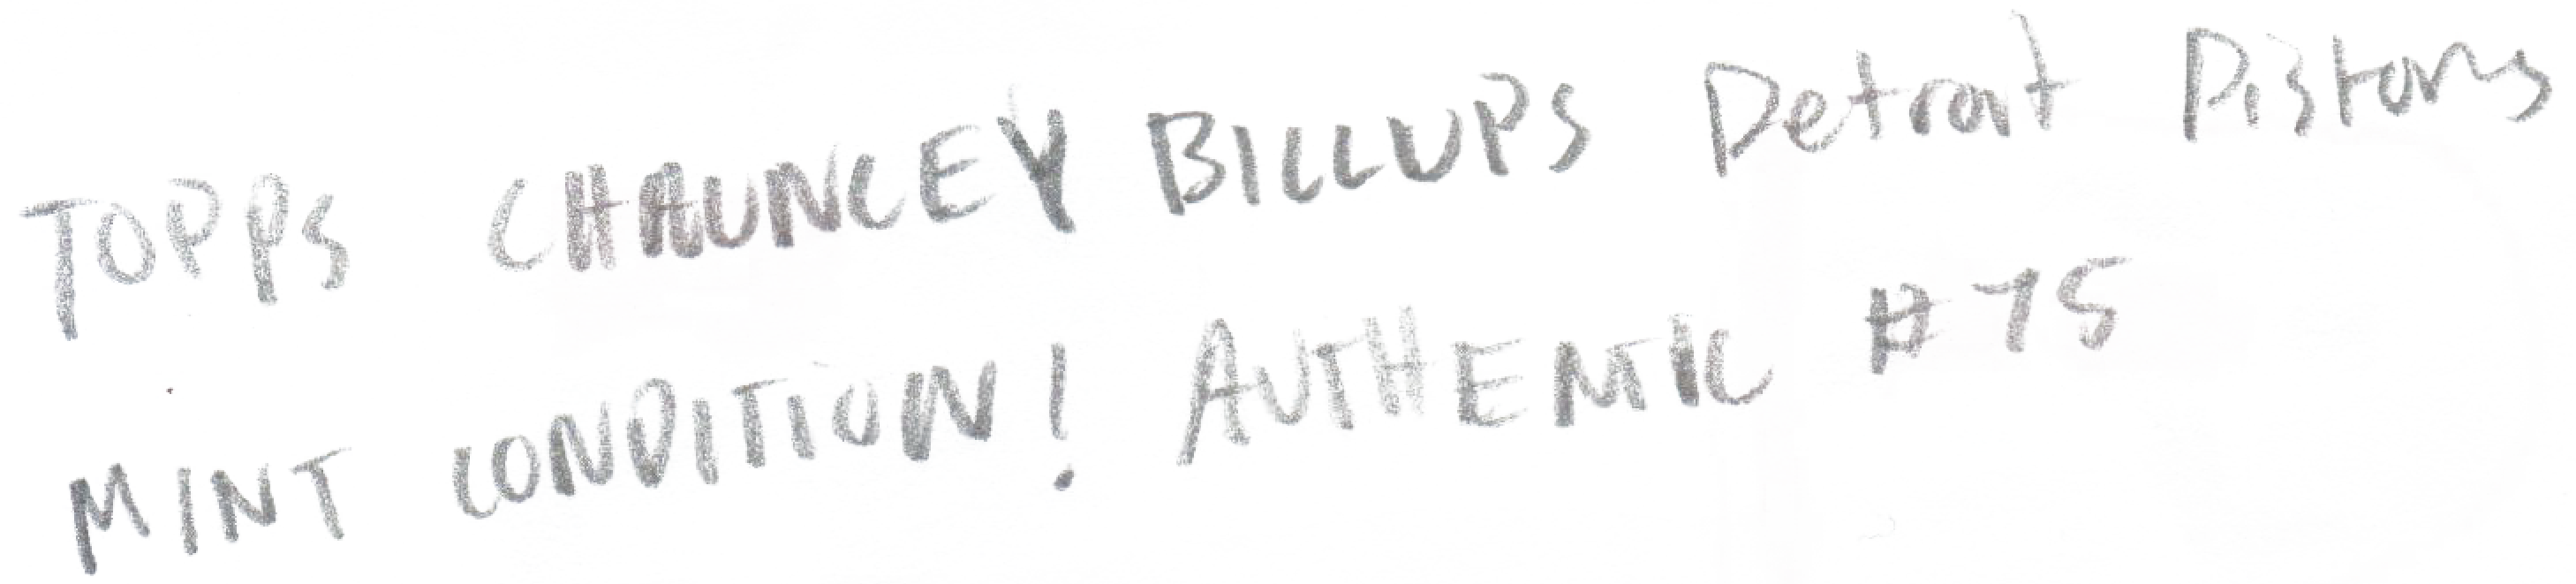 TOPPS CHAUNCEY BILLUPS Detroit Pistons
MINT CONDITION! AUTHENTIC #75